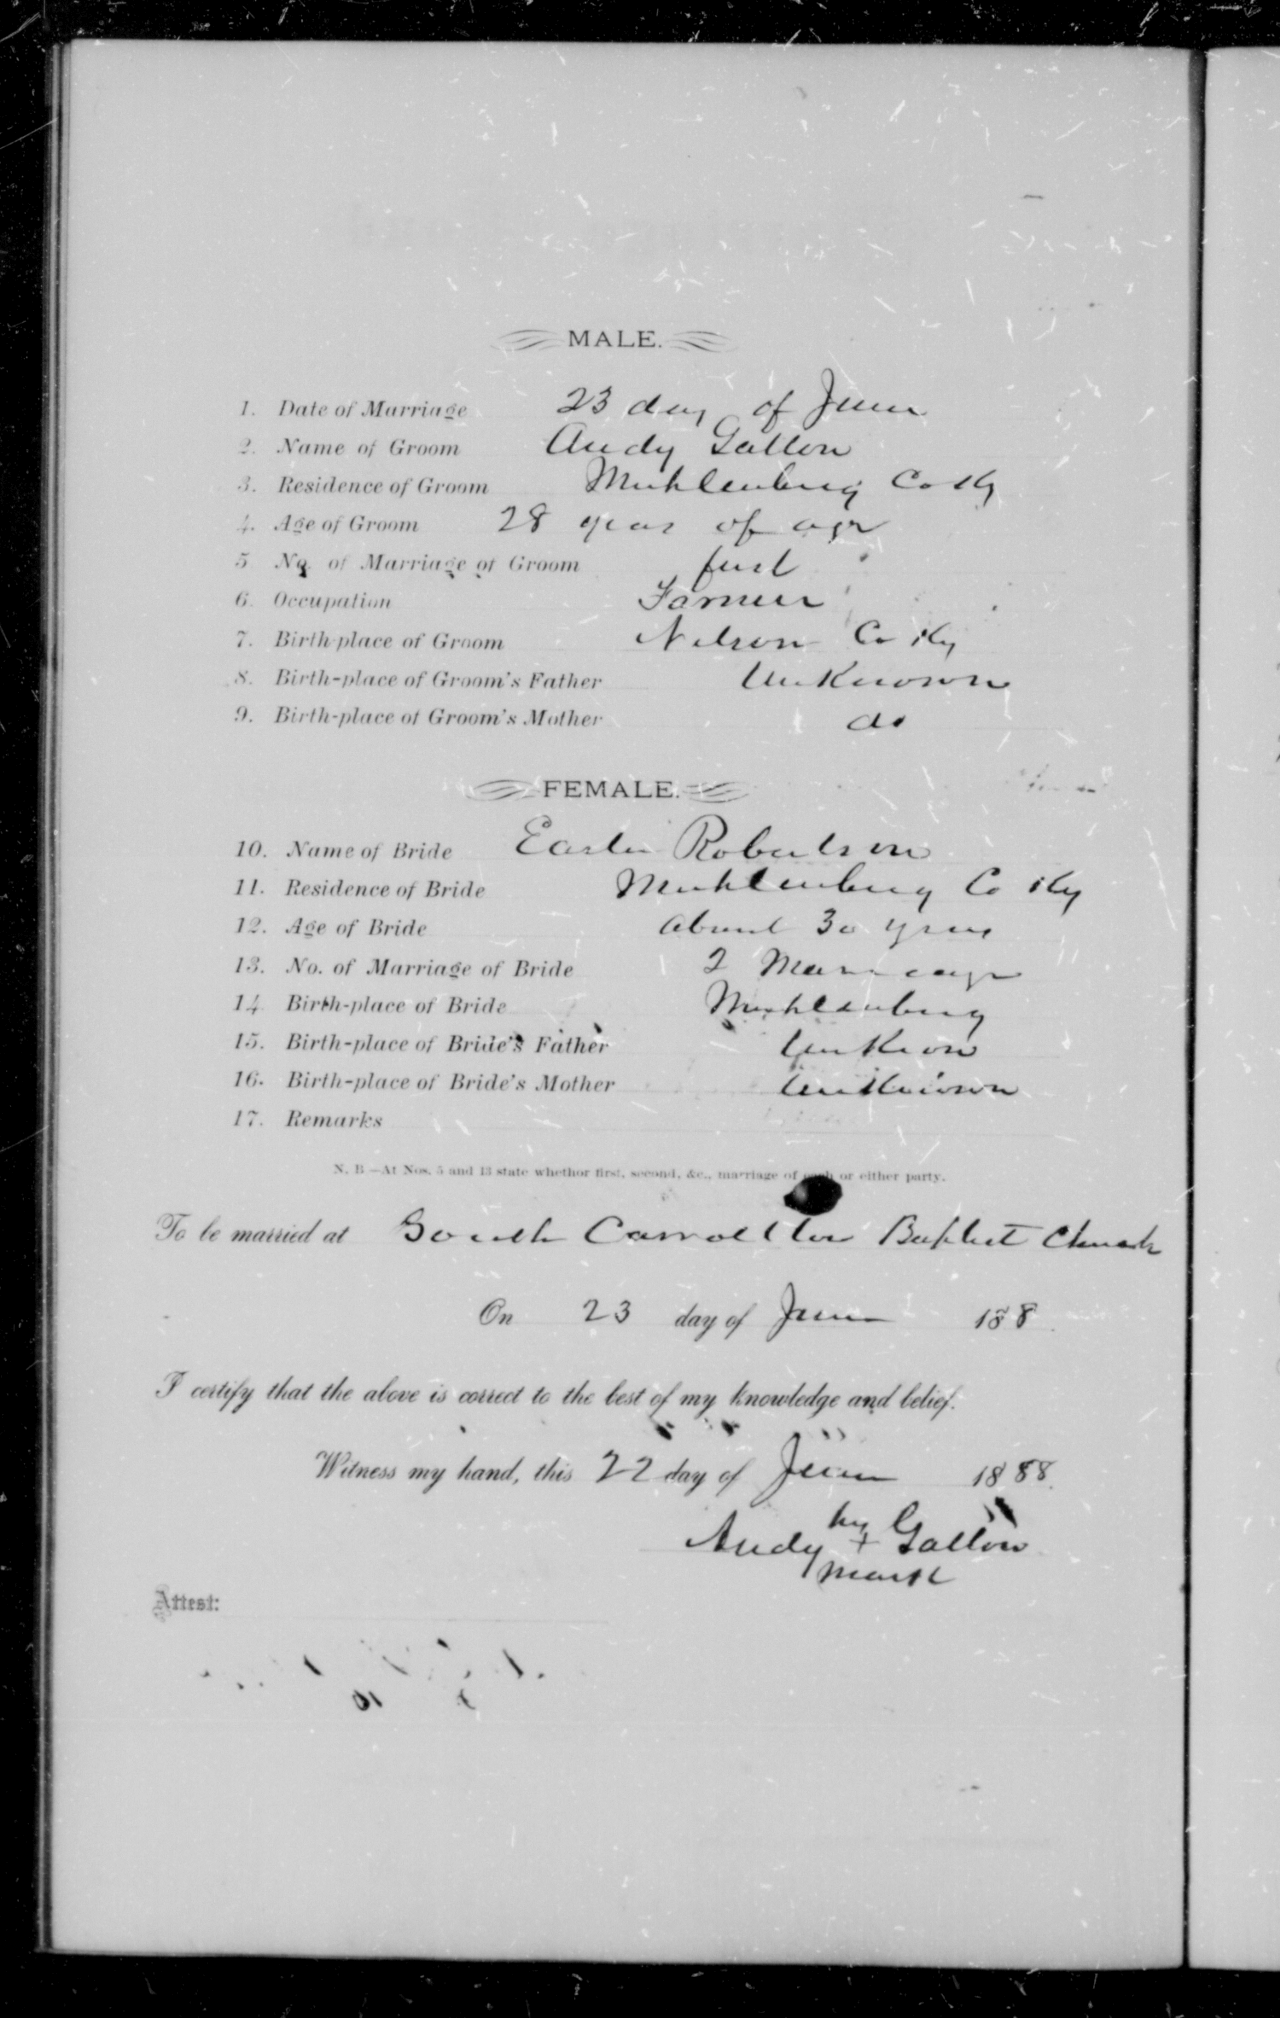 MALE.
1. Date of Marriage 23 day of June
2. Name of Groom Andy Gatton
3. Residence of Groom Muhlenburg Co Ky
4. Age of Groom 28 years of age
5. No. of Marriage of Groom first
6. Occupation Farmer
7. Birth-place of Groom Nelson Co Ky
8. Birth-place of Groom's Father Unknown
9. Birth-place of Groom's Mother do
FEMALE.
10. Name of Bride Easter Robertson
11. Residence of Bride Muhlenburg Co Ky
12. Age of Bride about 30 years
13. No. of Marriage of Bride 2 Marriage
14. Birth-place of Bride Muhlenburg
15. Birth-place of Bride's Father Unknown
16. Birth-place of Bride's Mother Unknown
17. Remarks
N. B.—At Nos. 5 and 13 state whether first, second, &c., marriage of each or either party.
To be married at South Carrollton Baptist Church
On 23 day of June 188
I certify that the above is correct to the best of my knowledge and belief.
Witness my hand, this 22 day of June 1888.
his
Andy + Gatton
mark
Attest: